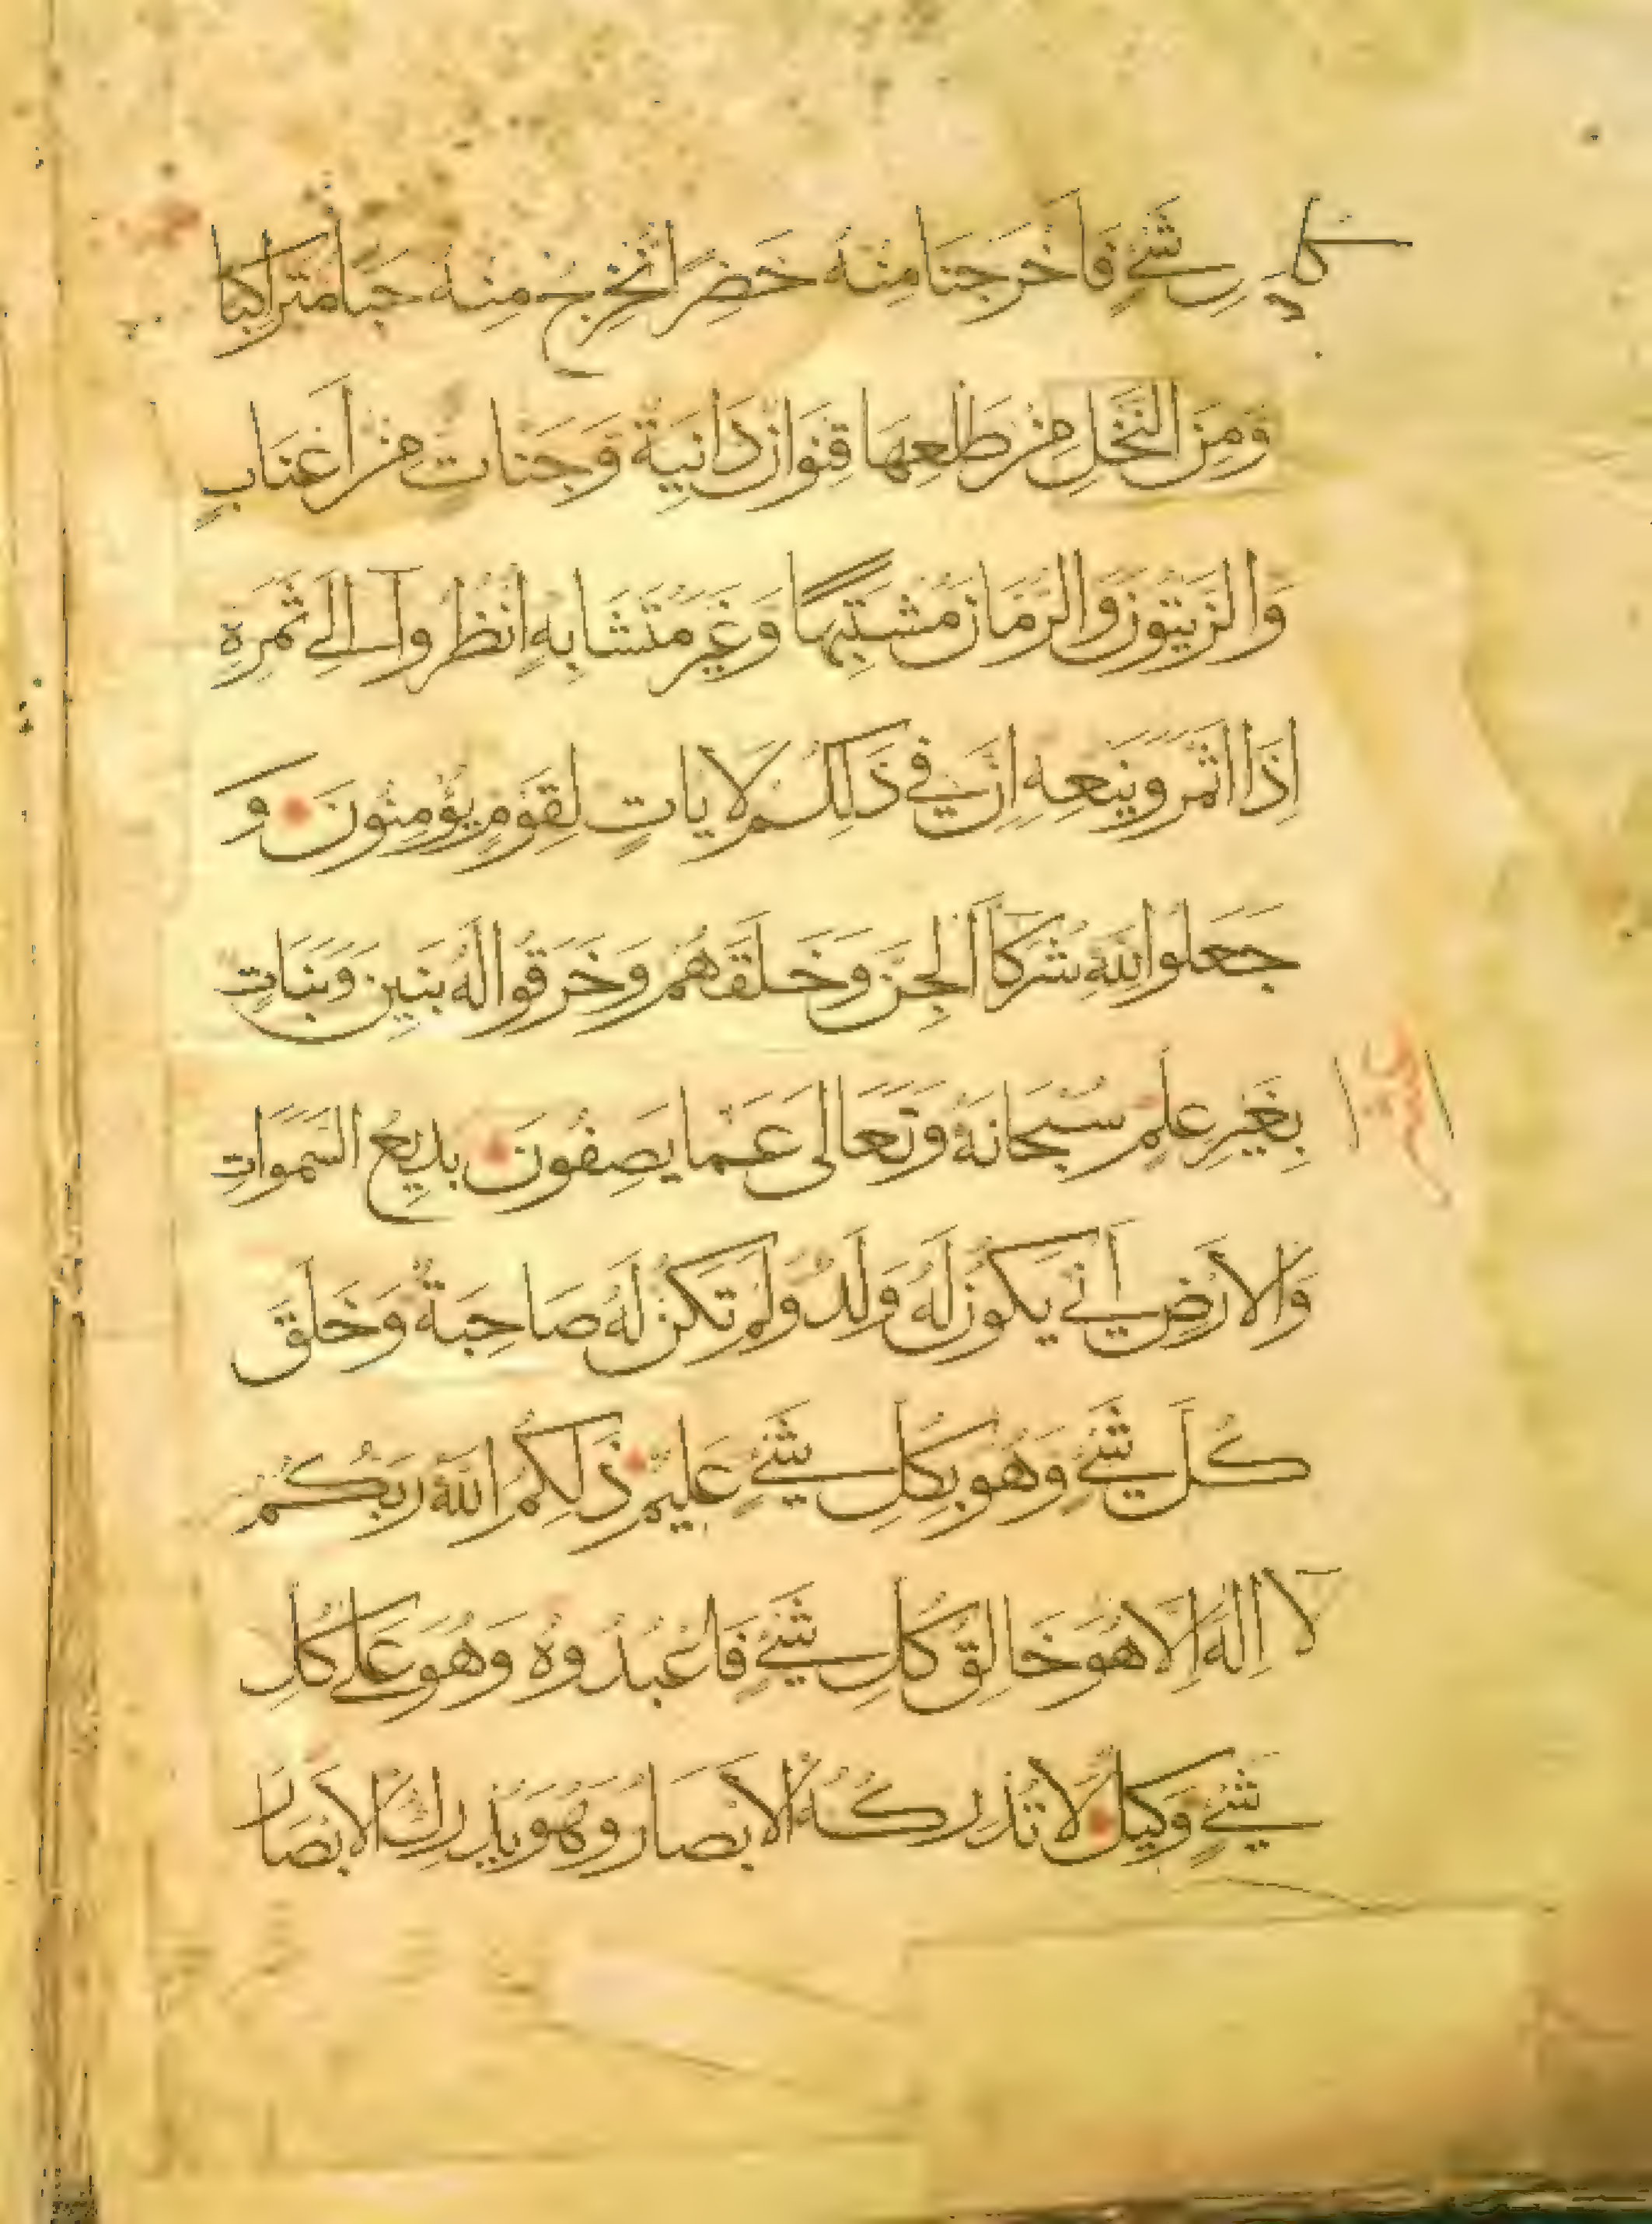 كل شَيْءٍ فَأَخْرَجْنَا مِنْهُ خَضِرًا نُخْرِجُ مِنْهُ حَبًّا مُتَرَاكِبًا
وَمِنَ النَّخْلِ مِنْ طَلْعِهَا قِنْوَانٌ دَانِيَةٌ وَجَنَّاتٍ مِنْ أَعْنَابٍ
وَالزَّيْتُونَ وَالرُّمَّانَ مُشْتَبِهًا وَغَيْرَ مُتَشَابِهٍ انْظُرُوا إِلَى ثَمَرِهِ
إِذَا أَثْمَرَ وَيَنْعِهِ إِنَّ فِي ذَلِكُمْ لَآيَاتٍ لِقَوْمٍ يُؤْمِنُونَ وَ
جَعَلُوا لِلَّهِ شُرَكَاءَ الْجِنَّ وَخَلَقَهُمْ وَخَرَقُوا لَهُ بَنِينَ وَبَنَاتٍ
بِغَيْرِ عِلْمٍ سُبْحَانَهُ وَتَعَالَى عَمَّا يَصِفُونَ بَدِيعُ السَّمَوَاتِ
وَالْأَرْضِ أَنَّى يَكُونُ لَهُ وَلَدٌ وَلَمْ تَكُنْ لَهُ صَاحِبَةٌ وَخَلَقَ
كُلَّ شَيْءٍ وَهُوَ بِكُلِّ شَيْءٍ عَلِيمٌ ذَلِكُمُ اللَّهُ رَبُّكُمْ
لَا إِلَهَ إِلَّا هُوَ خَالِقُ كُلِّ شَيْءٍ فَاعْبُدُوهُ وَهُوَ عَلَى كُلِّ
شَيْءٍ وَكِيلٌ لَا تُدْرِكُهُ الْأَبْصَارُ وَهُوَ يُدْرِكُ الْأَبْصَارَ